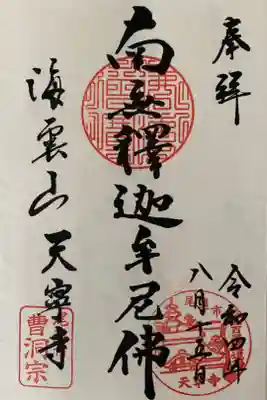 奉拝
令和四年
八月十五日
南無釋迦牟尼佛
海雲山天寧寺
曹洞宗